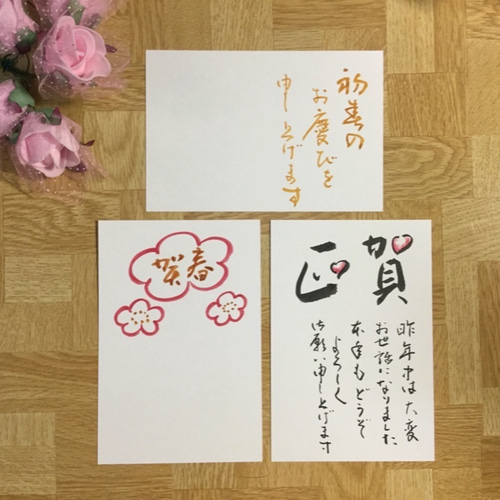 初春の
お慶びを
申し上げます
賀春
賀正
昨年中は大変
お世話になりました
本年もどうぞ
よろしく
御願い申し上げます